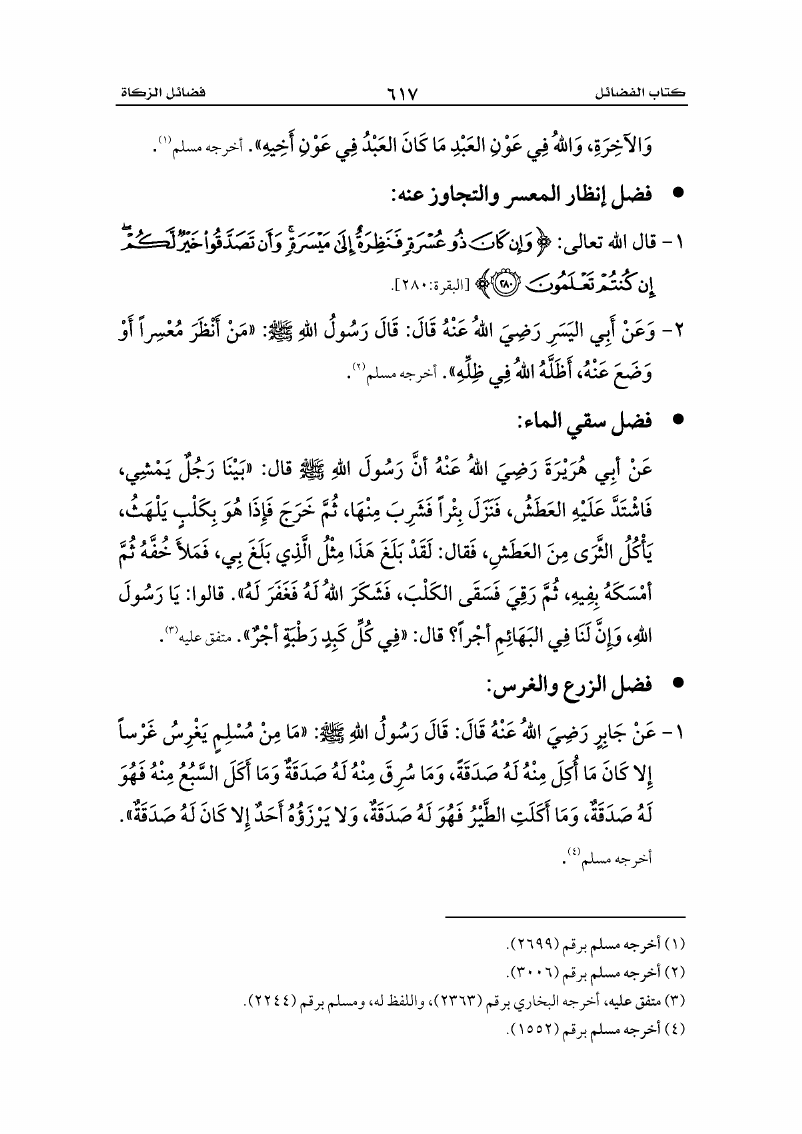 كتاب الفضائل ٦١٧ فضائل الزكاة
وَالآخِرَةِ، وَاللهُ فِي عَوْنِ العَبْدِ مَا كَانَ العَبْدُ فِي عَوْنِ أَخِيهِ». أخرجه مسلم(١).
• فضل إنظار المعسر والتجاوز عنه:
١- قال الله تعالى: ﴿وَإِن كَانَ ذُو عُسْرَةٍ فَنَظِرَةٌ إِلَىٰ مَيْسَرَةٍ ۚ وَأَن تَصَدَّقُوا۟ خَيْرٌ لَّكُمْ ۖ
إِن كُنتُمْ تَعْلَمُونَ ﴿٢٨٠﴾﴾ [البقرة:٢٨٠].
٢- وَعَنْ أَبِي اليَسَرِ رَضِيَ اللهُ عَنْهُ قَالَ: قَالَ رَسُولُ اللهِ ﷺ: «مَنْ أَنْظَرَ مُعْسِراً أَوْ
وَضَعَ عَنْهُ، أَظَلَّهُ اللهُ فِي ظِلِّهِ». أخرجه مسلم(٢).
• فضل سقي الماء:
عَنْ أبِي هُرَيْرَةَ رَضِيَ اللهُ عَنْهُ أنَّ رَسُولَ اللهِ ﷺ قال: «بَيْنَا رَجُلٌ يَمْشِي،
فَاشْتَدَّ عَلَيْهِ العَطَشُ، فَنَزَلَ بِئْراً فَشَرِبَ مِنْهَا، ثُمَّ خَرَجَ فَإِذَا هُوَ بِكَلْبٍ يَلْهَثُ،
يَأْكُلُ الثَّرَى مِنَ العَطَشِ، فَقال: لَقَدْ بَلَغَ هَذَا مِثْلُ الَّذِي بَلَغَ بِي، فَمَلأَ خُفَّهُ ثُمَّ
أمْسَكَهُ بِفِيهِ، ثُمَّ رَقِيَ فَسَقَى الكَلْبَ، فَشَكَرَ اللهُ لَهُ فَغَفَرَ لَهُ». قالوا: يَا رَسُولَ
اللهِ، وَإِنَّ لَنَا فِي البَهَائِمِ أجْراً؟ قال: «فِي كُلِّ كَبِدٍ رَطْبَةٍ أجْرٌ». متفق عليه(٣).
• فضل الزرع والغرس:
١- عَنْ جَابِرٍ رَضِيَ اللهُ عَنْهُ قَالَ: قَالَ رَسُولُ اللهِ ﷺ: «مَا مِنْ مُسْلِمٍ يَغْرِسُ غَرْساً
إِلا كَانَ مَا أُكِلَ مِنْهُ لَهُ صَدَقَةً، وَمَا سُرِقَ مِنْهُ لَهُ صَدَقَةٌ وَمَا أَكَلَ السَّبُعُ مِنْهُ فَهُوَ
لَهُ صَدَقَةٌ، وَمَا أَكَلَتِ الطَّيْرُ فَهُوَ لَهُ صَدَقَةٌ، وَلا يَرْزَؤُهُ أَحَدٌ إِلا كَانَ لَهُ صَدَقَةٌ».
أخرجه مسلم(٤).
(١) أخرجه مسلم برقم (٢٦٩٩).
(٢) أخرجه مسلم برقم (٣٠٠٦).
(٣) متفق عليه، أخرجه البخاري برقم (٢٣٦٣)، واللفظ له، ومسلم برقم (٢٢٤٤).
(٤) أخرجه مسلم برقم (١٥٥٢).